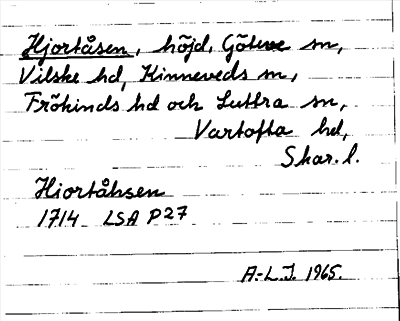 Hjortåsen, höjd, Göteve sn,
Vilske hd, Kinneveds sn,
Frökinds hd och Luttra sn,
Vartofta hd,
Skar. l.
Hiortåhsen
1714 LSA P27
A.-L.J. 1965.